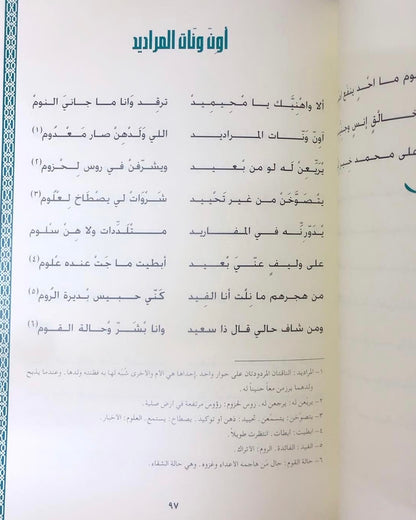 أون ونات المراديد
ألا واهْنِيَّك يا محيميد ترقد وَانا ما جانَي النومْ
أون وَنّات المراديد اللي وَلَدْهِنْ صار مَعْدُوم (١)
يْرَبِّعِنْ له لو من بْعيد ويشرّفنْ في روس لِحْزوم (٢)
يتْصَوَّخَنْ من غير تَحْيِيد شَرْوَاتْ لي يصْطاخ لِعْلُوم (٣)
يْدَوْرِنّه في المفاريد متْلَدِّدات ولا هِنْ سْلوم
على وليفٍ عنّي بْعيد أبطيت ما جَتْ عنده عْلوم (٤)
من هجرهم ما نِلْت أنا الفَيد كَنّي حبيس بْديرة الرُوم (٥)
ومن شاف حالي قال ذا سعيد وانا بْشَرّ وْحالة القوم (٦)
١- المراديد: الناقتان المردودتان على حوار واحد، إحداها هي الأم والأخرى شُبّه لها به فظنته ولدها. وعندما يذبح
ولدهما يرزمن معاً حنيناً له.
٢- يربعن له: يرجعن له. روس لحزوم: رؤوس مرتفعة في أرض صلبة.
٣- يتصوخن: يتسمعن. تحييد: ذهن أو توكيد. يصطاخ: يستمع. العلوم: الأخبار.
٤- ابطيت: ابطأت. انتظرت طويلاً.
٥- الفيد: الفائدة. الروم: الأتراك.
٦- حالة القوم: حال من هاجمه الأعداء وغزوه. وهي حالة الشقاء.
٩٧
وم ما احدٍ ينفع
خالق إنس وجن
على محمد